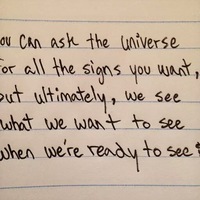 ou can ask the universe
for all the signs you want,
but ultimately, we see
what we want to see
when we're ready to see